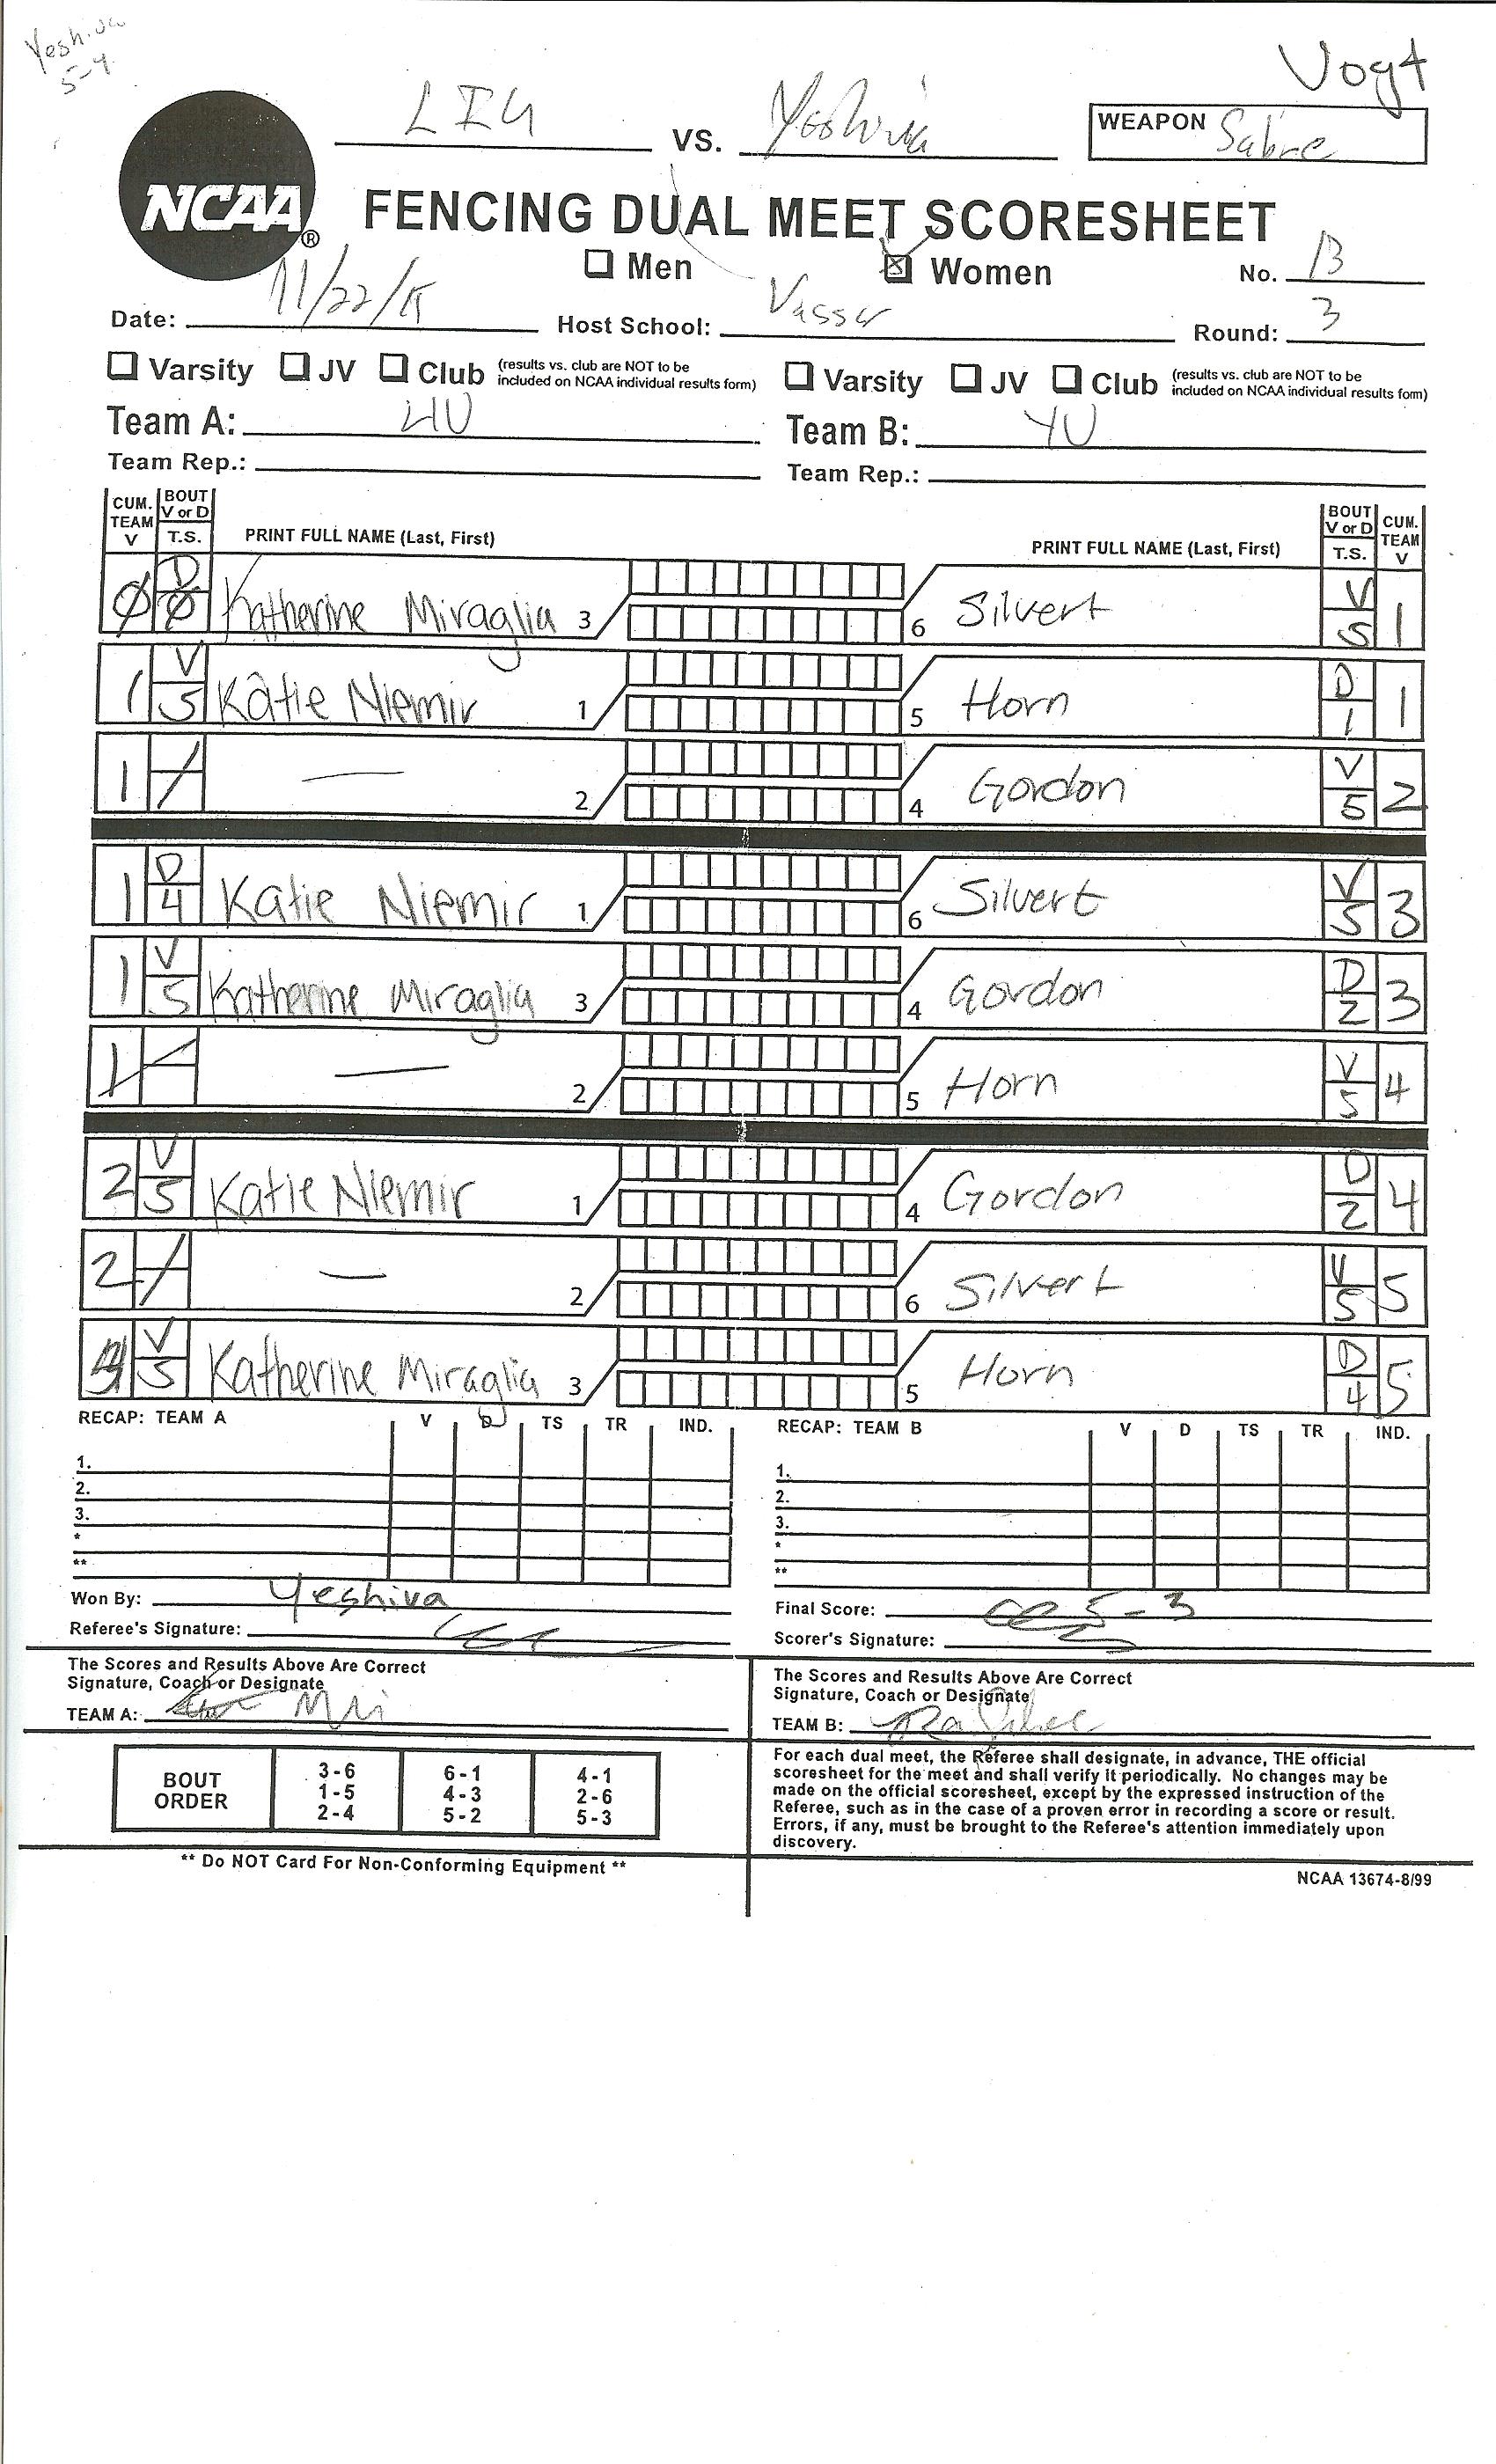 Yeshiva
5-4
Vogt
LIU VS. Yeshiva
WEAPON Sabre
NCAA®
FENCING DUAL MEET SCORESHEET
Men Women No. B
Date: 11/22/15 Host School: Vassar Round: 3
Varsity JV Club (results vs. club are NOT to be included on NCAA individual results form) Varsity JV Club (results vs. club are NOT to be included on NCAA individual results form)
Team A: LIU Team B: YU
Team Rep.: Team Rep.:
CUM. TEAM V BOUT V or D T.S. PRINT FULL NAME (Last, First) PRINT FULL NAME (Last, First) BOUT V or D T.S. CUM. TEAM V
0 D 0 Katherine Miraglia 3 6 Silvert V 5 1
1 V 5 Katie Niemir 1 5 Horn D 1 1
1 / — 2 4 Gordon V 5 2
1 D 4 Katie Niemir 1 6 Silvert V 5 3
1 V 5 Katherine Miraglia 3 4 Gordon D 2 3
1 — 2 5 Horn V 5 4
2 V 5 Katie Niemir 1 4 Gordon D 2 4
2 / — 2 6 Silvert V 5 5
V 5 Katherine Miraglia 3 5 Horn D 4 5
RECAP: TEAM A V D TS TR IND. RECAP: TEAM B V D TS TR IND.
1. 1.
2. 2.
3. 3.
* *
** **
Won By: Yeshiva Final Score: 5-3
Referee's Signature: Scorer's Signature:
The Scores and Results Above Are Correct The Scores and Results Above Are Correct
Signature, Coach or Designate Signature, Coach or Designate
TEAM A: TEAM B:
BOUT ORDER
3-6 6-1 4-1
1-5 4-3 2-6
2-4 5-2 5-3
For each dual meet, the Referee shall designate, in advance, THE official
scoresheet for the meet and shall verify it periodically. No changes may be
made on the official scoresheet, except by the expressed instruction of the
Referee, such as in the case of a proven error in recording a score or result.
Errors, if any, must be brought to the Referee's attention immediately upon
discovery.
** Do NOT Card For Non-Conforming Equipment **
NCAA 13674-8/99